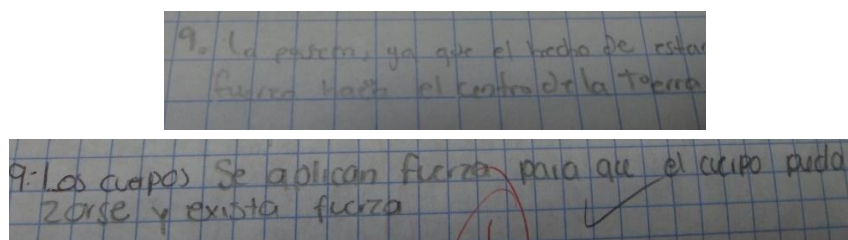 9. La ejercen, ya que el hecho de estar
fuerza hacia el centro de la tierra
9:Los cuerpos Se aplican fuerza para que el cuerpo pueda
zarse y exista fuerza